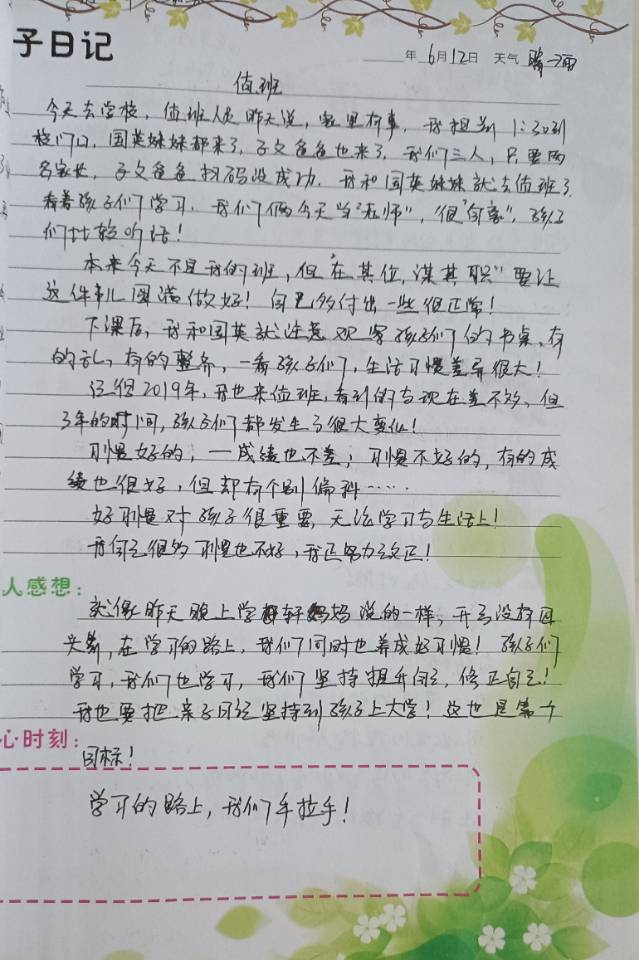 子日记
年 6月12日 天气 晴→雨
值班
今天去学校，值班人员昨天说，家里有事，我提前1:30到
校门口，国英妹妹都来了，子文爸爸也来了，我们三人，只要两
名家长，子文爸爸扫码没成功，我和国英妹妹就去值班了。
看着孩子们学习，我们俩今天当"老师"，"很自豪"，孩子
们比较听话！
本来今天不是我的班，但"在其位，谋其职"要让
这件事儿圆满做好！自己多付出一些很正常！
下课后，我和国英就注意观察孩子们的书桌，有
的乱，有的整齐，一看孩子们，生活习惯差异很大！
记得2019年，我也来值班，看到的与现在差不多，但
3年的时间，孩子们都发生了很大变化！
习惯好的，一成绩也不差；习惯不好的，有的成
绩也很好，但却有个别偏科……
好习惯对孩子很重要，无论学习与生活上！
我自己很多习惯也不好，我正努力改正！
人感想：
就像昨天晚上学轩妈妈说的一样，开弓没有回
头箭，在学习的路上，我们同时也养成好习惯！孩子们
学习，我们也学习，我们坚持提升自己，修正自己！
我也要把亲子日记坚持到孩子上大学！这也是第一个
心时刻：
目标！
学习的路上，我们手拉手！